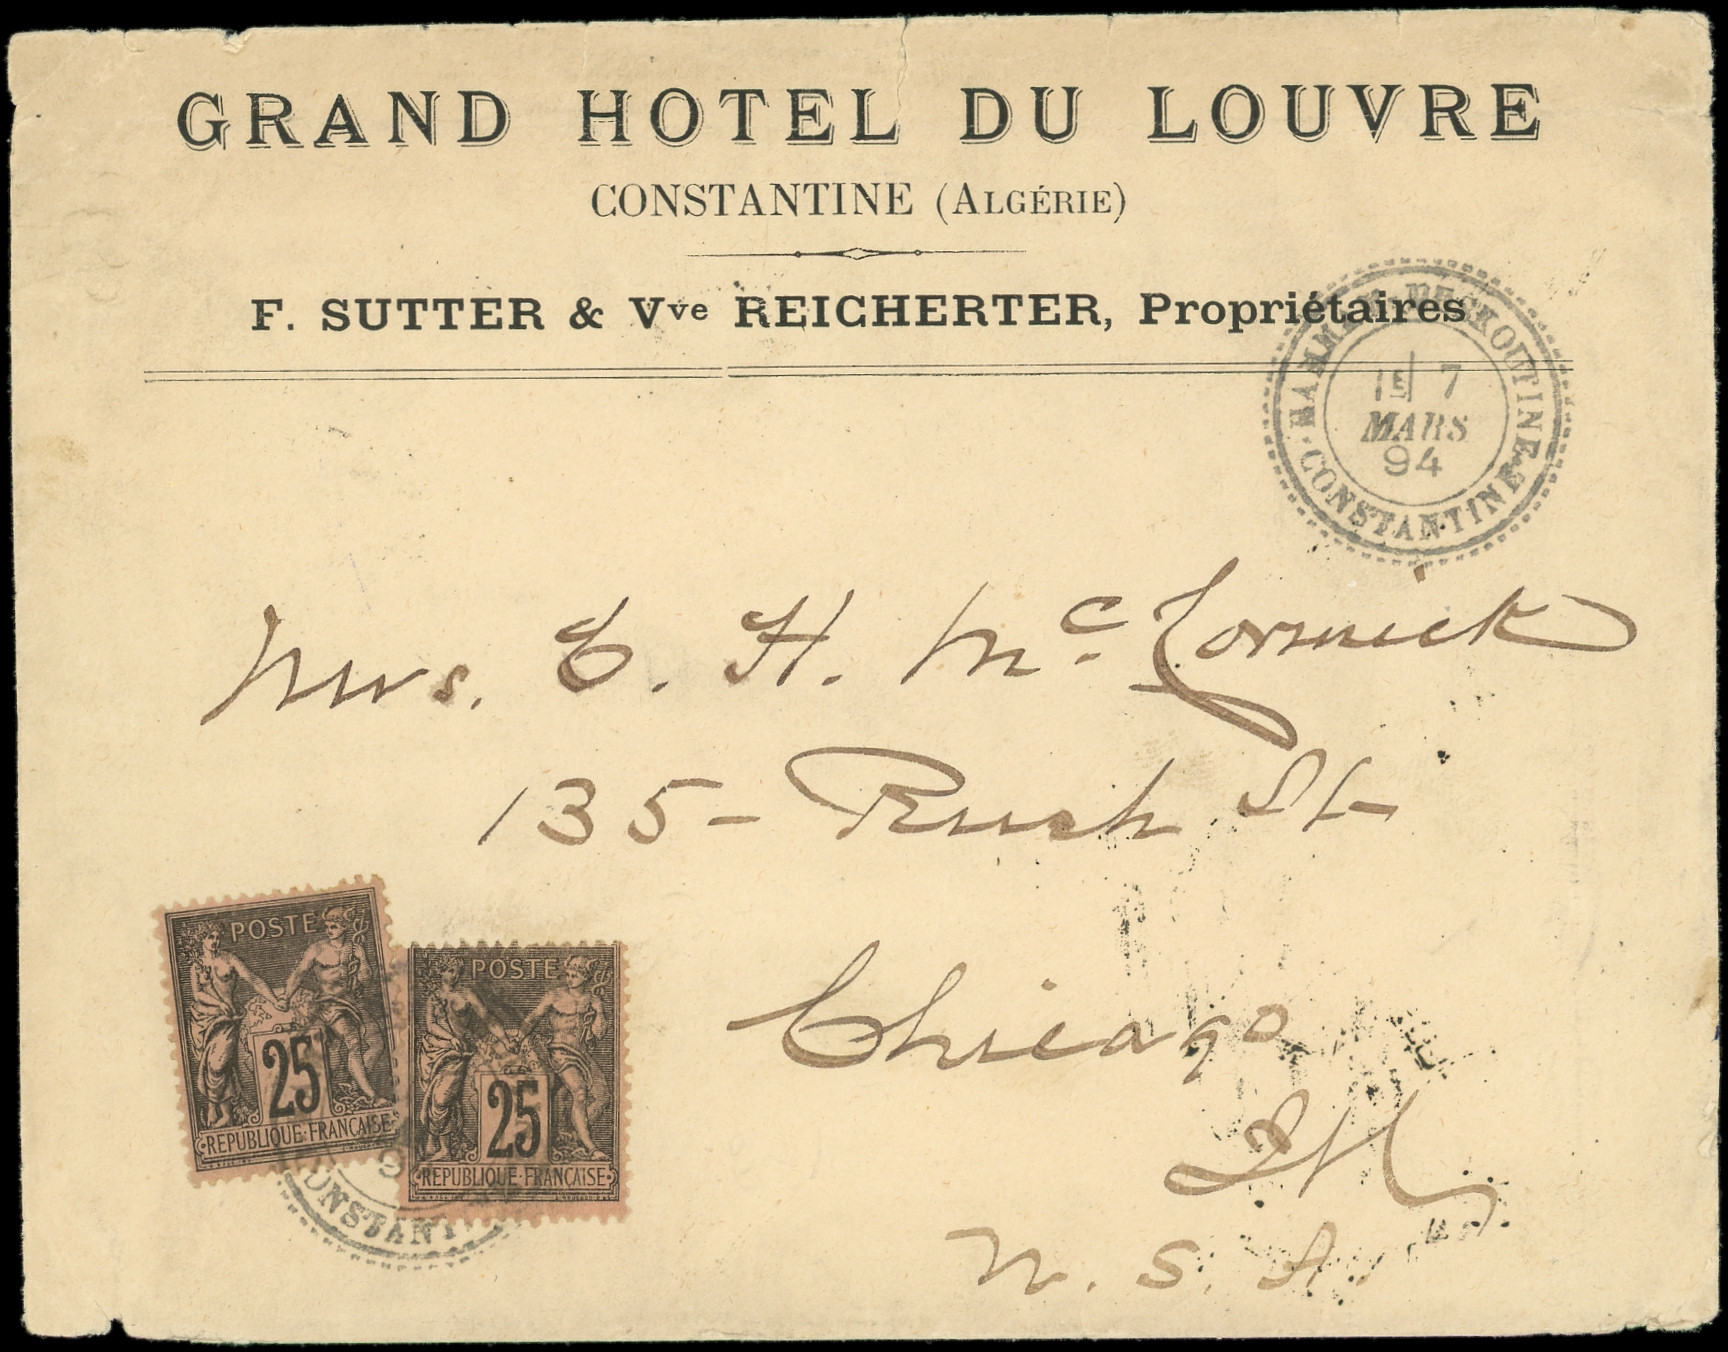 GRAND HOTEL DU LOUVRE
CONSTANTINE (ALGÉRIE)
F. SUTTER & Vve REICHERTER, Propriétaires
HAMMAM-MESKOUTINE
1E 7
MARS
94
CONSTANTINE
Mrs. C. H. McCormick
135 - Rush St
Chicago
Ill
U. S. A.
POSTE
25
REPUBLIQUE FRANÇAISE
POSTE
25
REPUBLIQUE FRANÇAISE
ONSTANT